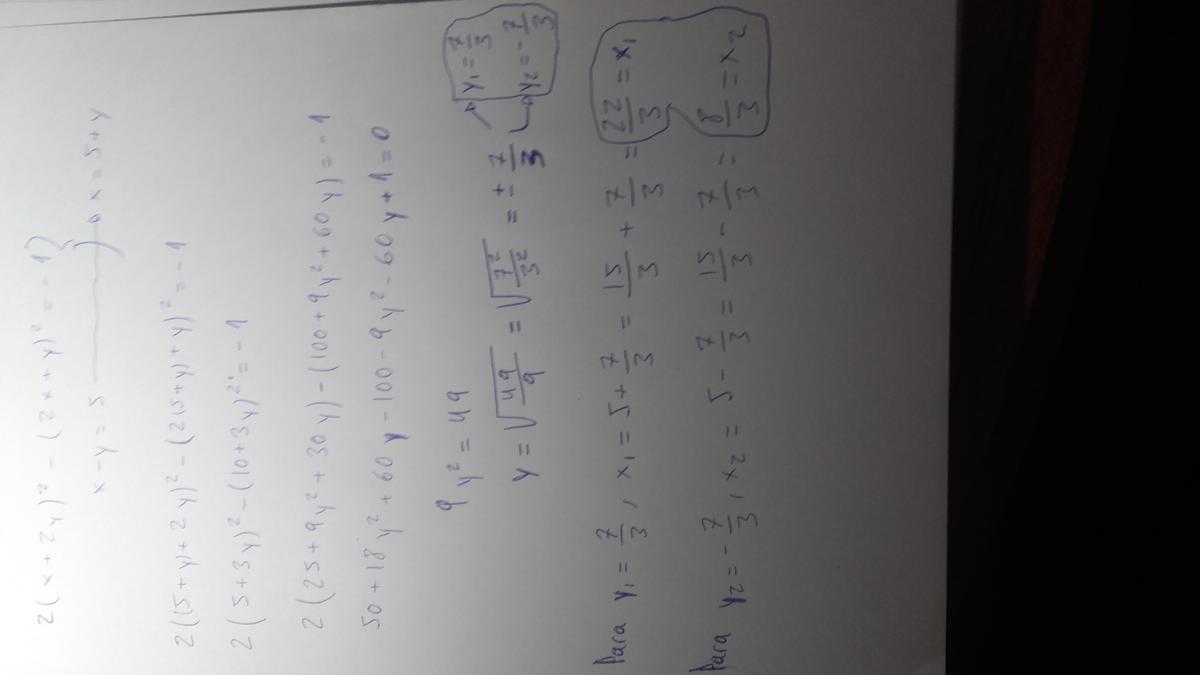 2(x+2y)² - (2x+y)² = -1}
x-y=5 → x=5+y
2((5+y)+2y)² - (2(5+y)+y)² = -1
2(5+3y)² - (10+3y)² = -1
2(25+9y²+30y) - (100+9y²+60y) = -1
50+18y²+60y-100-9y²-60y+1=0
9y² = 49
y = √(49/9) = √(7²/3²) = ± 7/3 → y₁ = 7/3
y₂ = -7/3
Para y₁ = 7/3, x₁ = 5+7/3 = 15/3 + 7/3 = 22/3 = x₁
Para y₂ = -7/3, x₂ = 5-7/3 = 15/3 - 7/3 = 8/3 = x₂